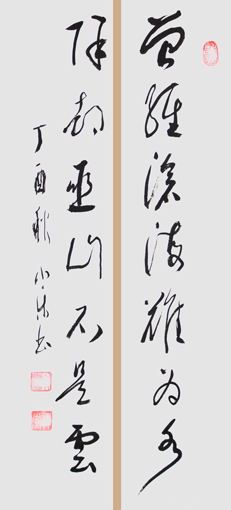 曾經滄海難為水
除却巫山不是雲
丁酉秋 小朱书